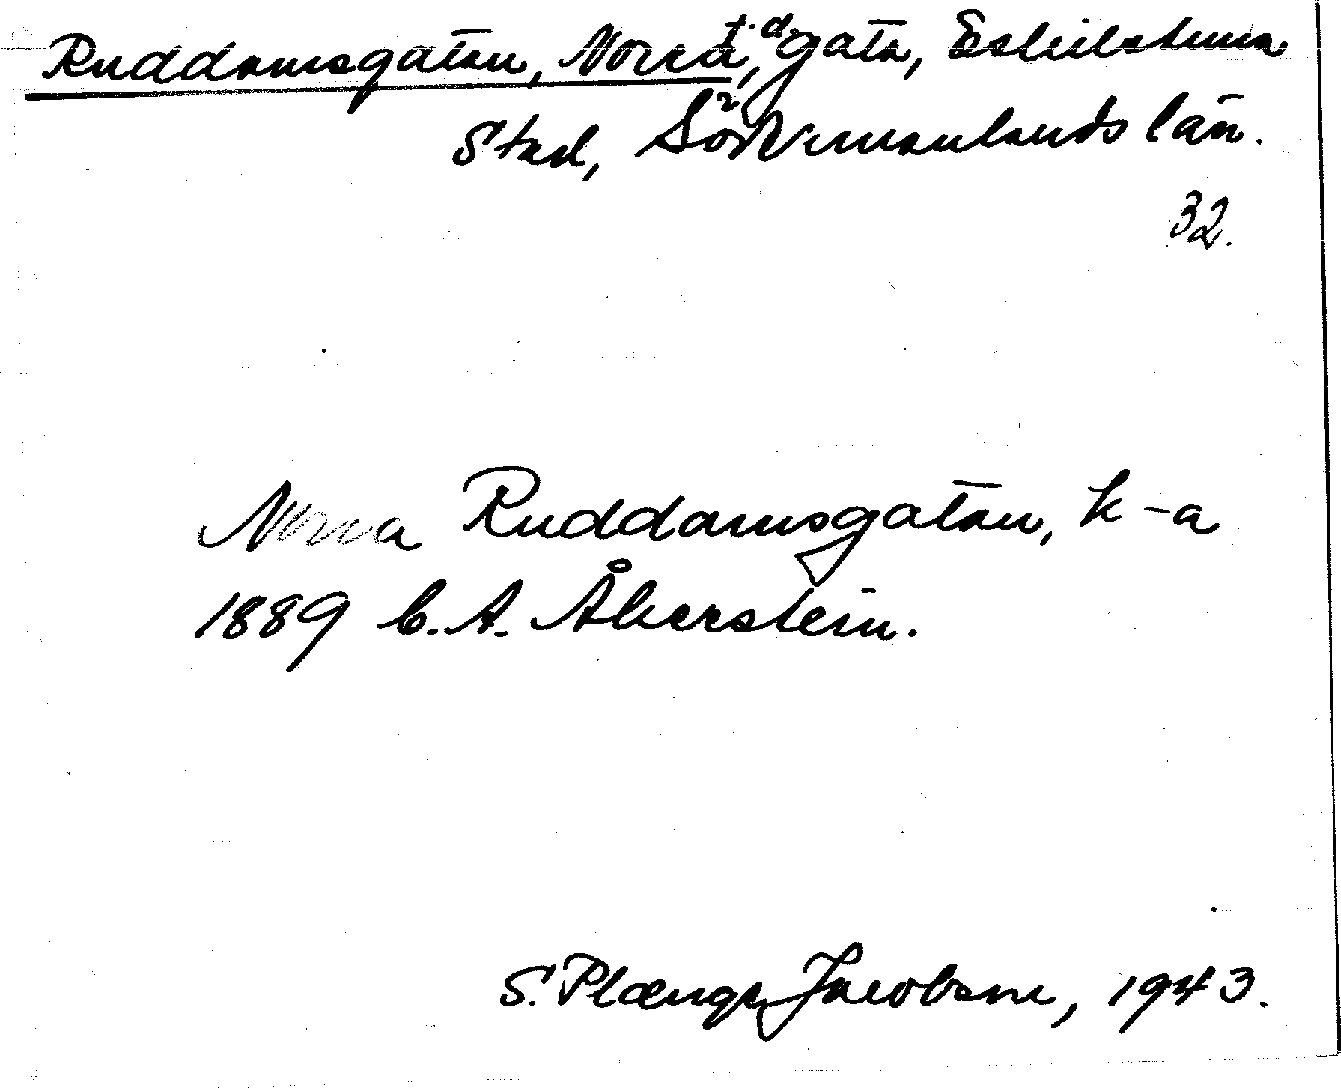 Ruddamsgatan, Norra, t.d. gata, Eskilstuna
Stad, Södermanlands län.
32.
Norra Ruddamsgatan, k-a
1889 C. A. Åkerstein.
S. Plænge Jacobson, 1943.